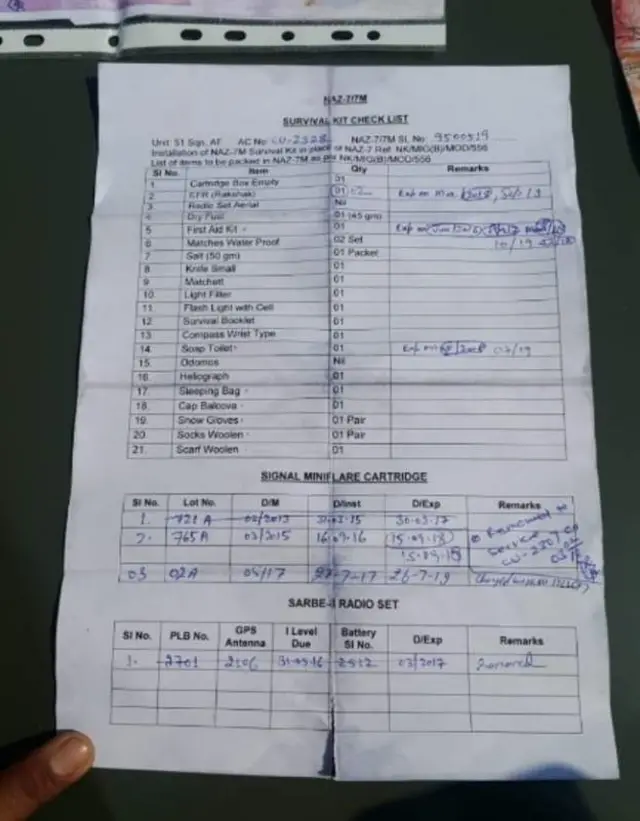 NAZ-7/7M
SURVIVAL KIT CHECK LIST
Unit: 51 Sqn, AF AC No: CU-2328 NAZ-7/7M Sl. No: 9500519
Installation of NAZ-7M Survival Kit in place of NAZ-7 Ref. NK/MIG(B)/MOD/556
List of items to be packed in NAZ-7M as per NK/MIG(B)/MOD/556)
Sl No. Item Qty Remarks
1 Cartridge Box Empty 01
2 EFR (Rakshak) 01 02 Exp on
3 Radio Set Aerial Nil
4 Dry Fuel 01 (45 gm)
5 First Aid Kit 01 Exp on
6 Matches Water Proof 02 Set 10/19
7 Salt (50 gm) 01 Packet
8 Knife Small 01
9 Matchett 01
10 Light Filter 01
11 Flash Light with Cell 01
12 Survival Booklet 01
13 Compass Wrist Type 01
14. Soap Toilet 01 Exp on 07/19
15. Odomos Nil
16. Heliograph 01
17. Sleeping Bag 01
18. Cap Balcova 01
19. Snow Gloves 01 Pair
20. Socks Woolen 01 Pair
21. Scarf Woolen 01
SIGNAL MINIFLARE CARTRIDGE
Sl No. Lot No. D/M D/Inst D/Exp Remarks
1. 721 A 02/2013 30-03-17
2. 765A 03/2015 16-09-16 15-09-18
15-09-18
03 02A 04/17 27-7-17 26-7-19
SARBE-8 RADIO SET
Sl No. PLB No. GPS Antenna I Level Due Battery Sl No. D/Exp Remarks
1. 2701 2506 31-03-16 03/2017 Removed